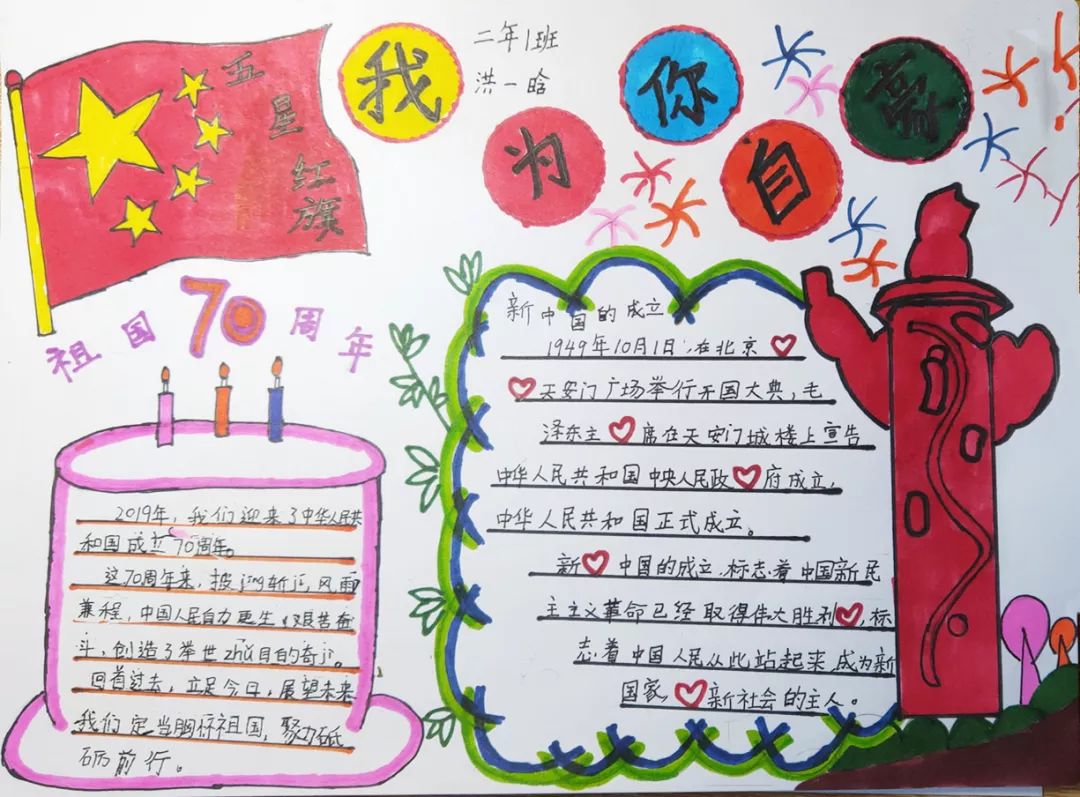 五星红旗
二年1班
洪一晗
我为你自豪
祖国70周年
2019年，我们迎来了中华人民共
和国成立70周年。
这70周年来，披jīng斩jí，风雨
兼程，中国人民自力更生、艰苦奋
斗，创造了举世zhǔ目的奇jì。
回首过去，立足今日，展望未来
我们定当胸怀祖国，聚力砥
砺前行。
新中国的成立
1949年10月1日，在北京
天安门广场举行开国大典，毛
泽东主席在天安门城楼上宣告
中华人民共和国中央人民政府成立，
中华人民共和国正式成立。
新中国的成立，标志着中国新民
主主义革命已经取得伟大胜利，标
志着中国人民从此站起来成为新
国家，新社会的主人。